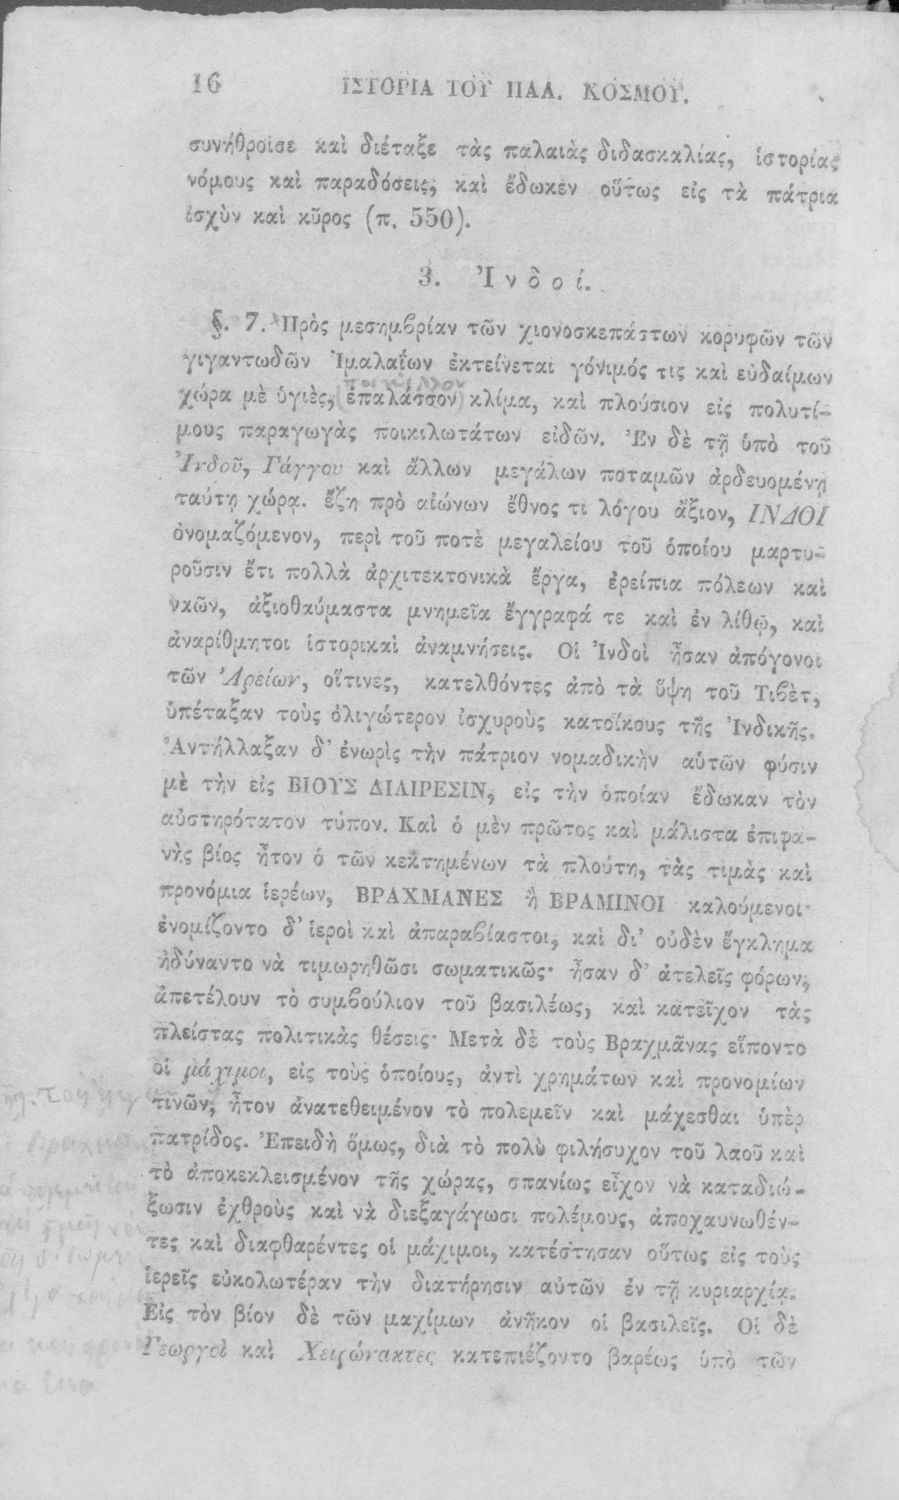 16 ΙΣΤΟΡΙΑ ΤΟΥ ΠΑΛ. ΚΟΣΜΟΥ.
συνήθροισε καὶ διέταξε τὰς παλαιὰς διδασκαλίας, ἱστορίας
νόμους καὶ παραδόσεις, καὶ ἔδωκεν οὕτως εἰς τὰ πάτρια
ἰσχὺν καὶ κῦρος (π. 550).
3. Ἰνδοί.
§. 7. Πρὸς μεσημβρίαν τῶν χιονοσκεπάστων κορυφῶν τῶν
γιγαντωδῶν Ἱμαλαΐων ἐκτείνεται γόνιμός τις καὶ εὐδαίμων
χώρα μὲ ὑγιὲς, ἐπαλάσσον κλίμα, καὶ πλούσιον εἰς πολυτί-
μους παραγωγὰς ποικιλωτάτων εἰδῶν. Ἐν δὲ τῇ ὑπὸ τοῦ
Ἰνδοῦ, Γάγγου καὶ ἄλλων μεγάλων ποταμῶν ἀρδευομένῃ
ταύτῃ χώρᾳ. ἔζη πρὸ αἰώνων ἔθνος τι λόγου ἄξιον, ΙΝΔΟΙ
ὀνομαζόμενον, περὶ τοῦ ποτὲ μεγαλείου τοῦ ὁποίου μαρτυ-
ροῦσιν ἔτι πολλὰ ἀρχιτεκτονικὰ ἔργα, ἐρείπια πόλεων καὶ
ναῶν, ἀξιοθαύμαστα μνημεῖα ἔγγραφά τε καὶ ἐν λίθῳ, καὶ
ἀναρίθμητοι ἱστορικαὶ ἀναμνήσεις. Οἱ Ἰνδοὶ ἦσαν ἀπόγονοι
τῶν Ἀρείων, οἵτινες, κατελθόντες ἀπὸ τὰ ὕψη τοῦ Τιβὲτ,
ὑπέταξαν τοὺς ὀλιγώτερον ἰσχυροὺς κατοίκους τῆς Ἰνδικῆς.
Ἀντήλλαξαν δ' ἐνωρὶς τὴν πάτριον νομαδικὴν αὑτῶν φύσιν
μὲ τὴν εἰς ΒΙΟΥΣ ΔΙΑΙΡΕΣΙΝ, εἰς τὴν ὁποίαν ἔδωκαν τὸν
αὐστηρότατον τύπον. Καὶ ὁ μὲν πρῶτος καὶ μάλιστα ἐπιφα-
νὴς βίος ἦτον ὁ τῶν κεκτημένων τὰ πλούτη, τὰς τιμὰς καὶ
προνόμια ἱερέων, ΒΡΑΧΜΑΝΕΣ ἢ ΒΡΑΜΙΝΟΙ καλούμενοι·
ἐνομίζοντο δ' ἱεροὶ καὶ ἀπαραβίαστοι, καὶ δι' οὐδὲν ἔγκλημα
ἠδύναντο νὰ τιμωρηθῶσι σωματικῶς· ἦσαν δ' ἀτελεῖς φόρων,
ἀπετέλουν τὸ συμβούλιον τοῦ βασιλέως, καὶ κατεῖχον τὰς
πλείστας πολιτικὰς θέσεις· Μετὰ δὲ τοὺς Βραχμᾶνας εἵποντο
οἱ μάχιμοι, εἰς τοὺς ὁποίους, ἀντὶ χρημάτων καὶ προνομίων
τινῶν, ἦτον ἀνατεθειμένον τὸ πολεμεῖν καὶ μάχεσθαι ὑπὲρ
πατρίδος. Ἐπειδὴ ὅμως, διὰ τὸ πολὺ φιλήσυχον τοῦ λαοῦ καὶ
τὸ ἀποκεκλεισμένον τῆς χώρας, σπανίως εἶχον νὰ καταδιώ-
ξωσιν ἐχθροὺς καὶ νὰ διεξαγάγωσι πολέμους, ἀποχαυνωθέν-
τες καὶ διαφθαρέντες οἱ μάχιμοι, κατέστησαν οὕτως εἰς τοὺς
ἱερεῖς εὐκολωτέραν τὴν διατήρησιν αὐτῶν ἐν τῇ κυριαρχίᾳ.
Εἰς τὸν βίον δὲ τῶν μαχίμων ἀνῆκον οἱ βασιλεῖς. Οἱ δὲ
Γεωργοὶ καὶ Χειρώνακτες κατεπιέζοντο βαρέως ὑπὸ τῶν